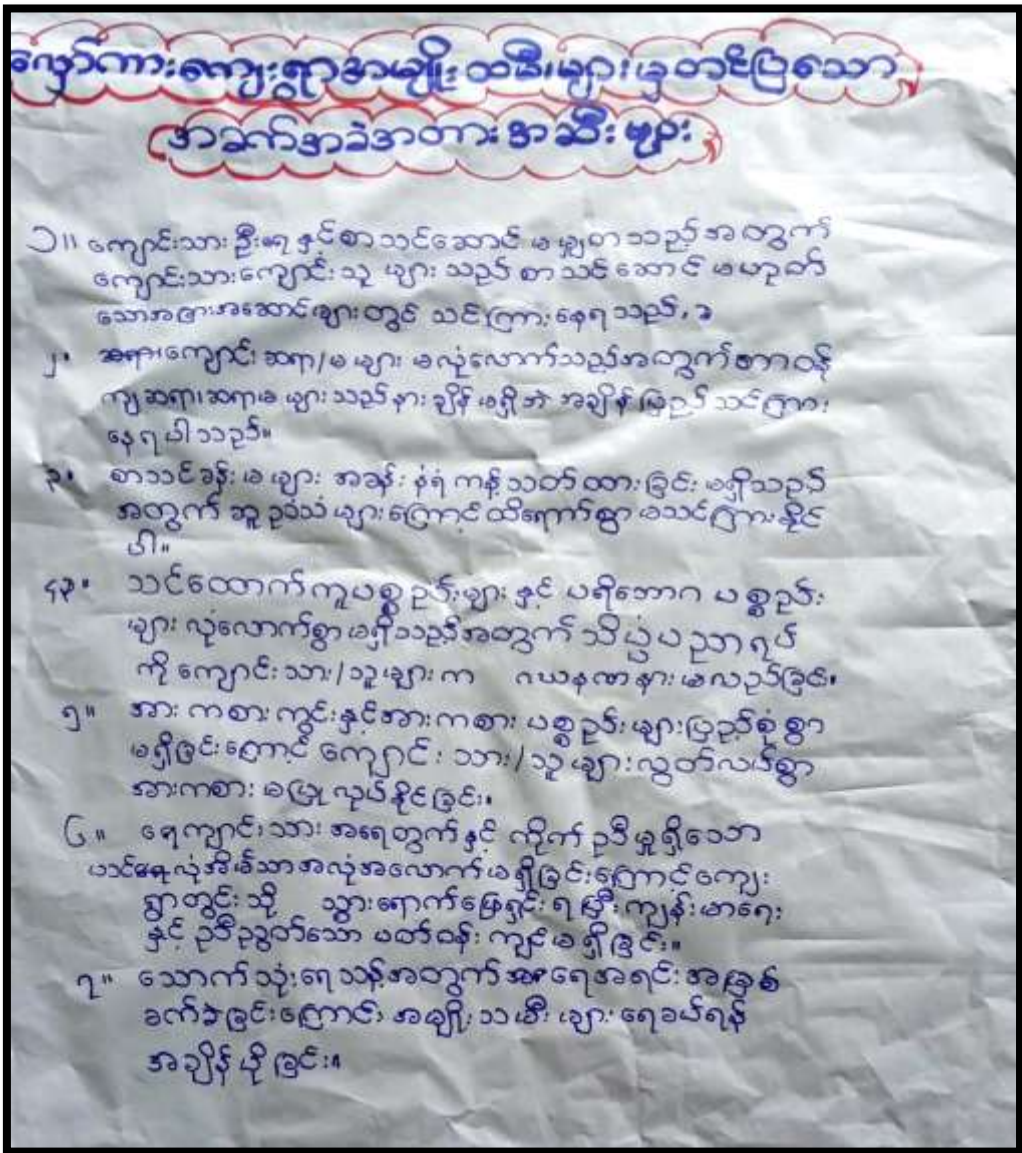 လှော်ကားကျေးရွာအမျိုးထမီးများမှတင်ပြသော
အခက်အခဲအတားအဆီးများ
၁။ ကျောင်းသားဦးရေနှင့်စာသင်ဆောင် မမျှတသည့်အတွက်
ကျောင်းသားကျောင်းသူ များ သည် စာသင်ဆောင် မဟုတ်
သောအခြားအဆောင်များတွင် သင်ကြားနေရသည်.
၂. ကျောင်းဆရာ/မများ မလုံလောက်သည့်အတွက်တာဝန်
ကျဆရာ၊ဆရာမများသည်နားချိန်မရှိဘဲ အချိန်ပြည့်သင်ကြား
နေရပါသည်။
၃. စာသင်ခန်းမများ အခန်းနံရံကန့်သတ်ထားခြင်းမရှိသည့်
အတွက် ဆူညံသံများကြောင့်ထိရောက်စွာမသင်ကြားနိုင်
ပါ။
၄. သင်ထောက်ကူပစ္စည်းများ နှင့် ပရိဘောဂ ပစ္စည်း
များ လုံလောက်စွာမရှိသည့်အတွက် သိပ္ပံပညာရပ်
ကို ကျောင်းသား/သူများက ဂဃနဏနားမလည်ခြင်း.
၅။ အားကစားကွင်းနှင့်အားကစား ပစ္စည်းများပြည့်စုံစွာ
မရှိခြင်းကြောင့် ကျောင်းသား/သူများလွတ်လပ်စွာ
အားကစား မပြုလုပ်နိုင်ခြင်း.
၆။ ကျောင်းသားအရေတွက်နှင့် ကိုက်ညီမှုရှိသော
ယင်လုံအိမ်သာအလုံအလောက်မရှိခြင်းကြောင့်ကျေး
ရွာတွင်းသို့ သွားရောက်ဖြေရှင်းရပြီးကျန်းမာရေး
နှင့် ညီညွတ်သော ပတ်ဝန်းကျင်မရှိခြင်း။
၇။ သောက်သုံးရေသန့်အတွက် ရေအရင်းအမြစ်
ခက်ခဲခြင်းကြောင်း အမျိုးသမီးများ ရေခပ်ရန်
အချိန်ပိုခြင်း။